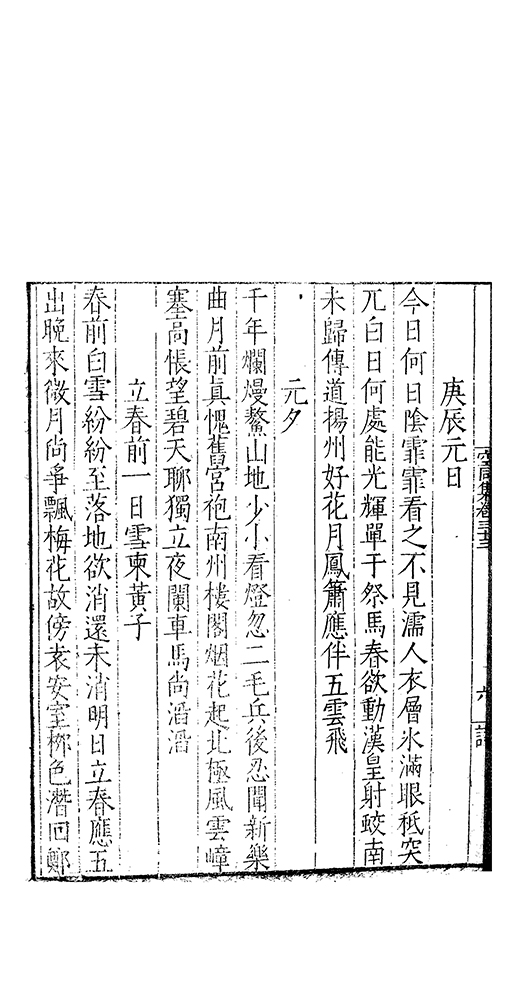 空同集卷
六
庚辰元日
今日何日陰霏霏看之不見濡人衣層氷滿眼秪突
兀白日何處能光輝單于祭馬春欲動漢皇射蛟南
未歸傳道揚州好花月鳳簫應伴五雲飛
元夕
千年爛熳鰲山地少小看燈忽二毛兵後忍聞新樂
曲月前眞愧舊宮袍南州樓閣烟花起北極風雲嶂
塞高悵望碧天聊獨立夜闌車馬尚滔滔
立春前一日雪柬黃子
春前白雪紛紛至落地欲消還未消明日立春應五
出晚來微月尚爭飄梅花故傍袁安室栁色潛回鄭